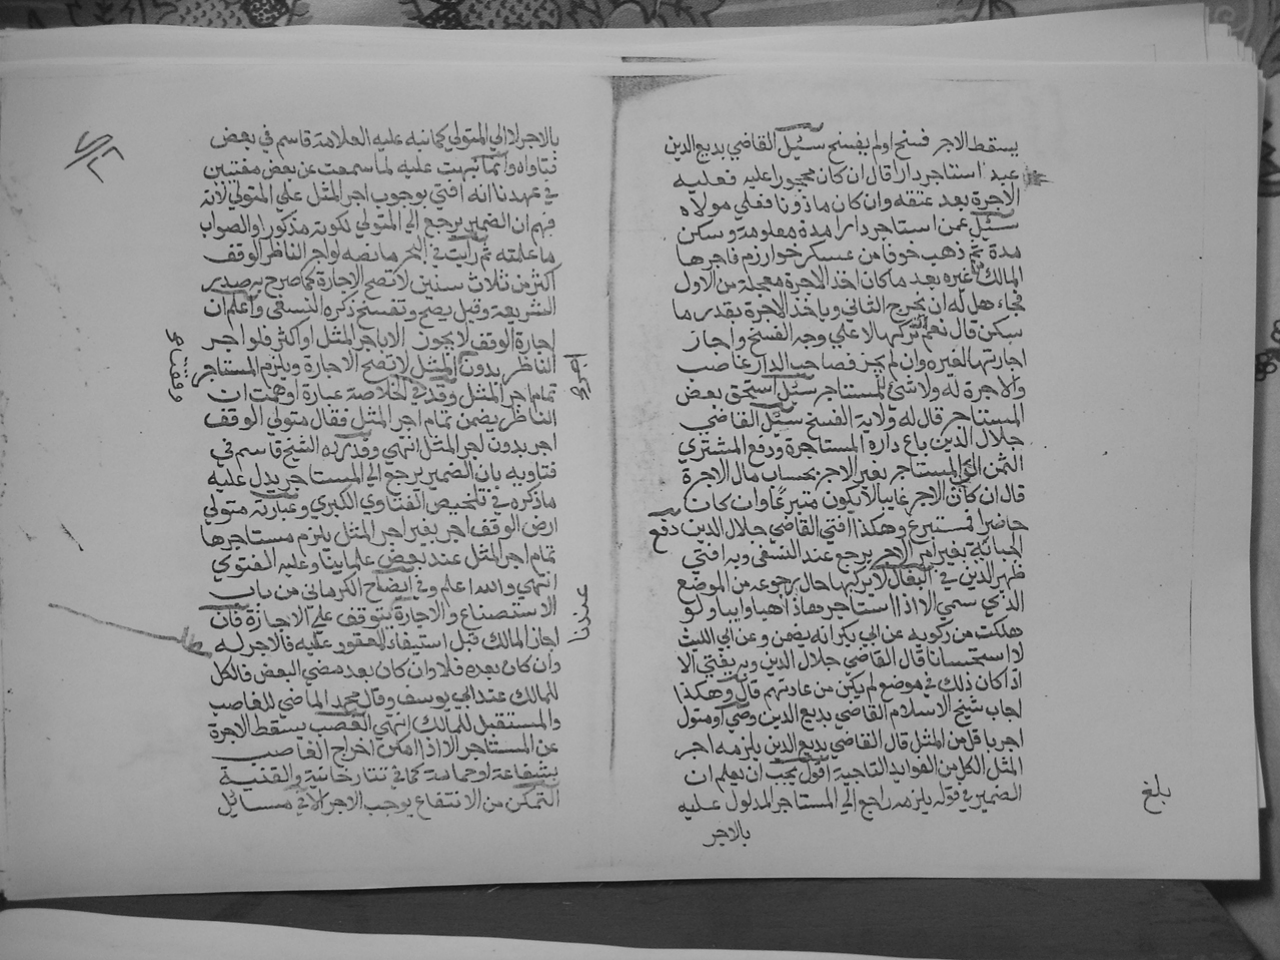 يسقط الاجر فسخ اولم يفسخ سئيل القاضي بديع الدين
عبد استاجر دارا قال ان كان محجورا عليه فعليه
الاجرة بعد عتقه وان كان ماذونا فعلي مولاه
سئيل عمن استاجر دارا مدة معلومة وسكن
مدة ثم ذهب خوفا من عسكر خوارزم فاجرها
المالك غيره بعد ما كان اخذ الاجرة معجلة من الاول
فجاء هل له ان يخرج الثاني وياخذ الاجرة بقدر ما
سكن قال نعم ان تركها لا علي وجه الفسخ واجاز
اجارتها لغيره وان لم يجز فصاحب الدار غاصب
والاجرة له ولا شئ للمستاجر سئيل استحق بعض
المستاجر قال له ولاية الفسخ سئيل القاضي
جلال الدين باع داره المستاجرة ودفع المشتري
الثمن الي المستاجر بغير الاجر بحساب مال الاجرة
قال ان كان الاجر غايبا لا يكون متبرعا وان كان
حاضرا فمتبرع وهكذا افتي القاضي جلال الدين دفع
الجباية بغير امر الاجر يرجع عند النسفي وبه افتي
ظهير الدين في البقال لا يركبها حال رجوعه من الموضع
الذي سمي الا اذا استاجرها ذاهبا وايبا ولو
هلكت من ركوبه عن ابي بكر انه يضمن وعن ابي الليث
لا استحسانا قال القاضي جلال الدين وبه يفتي الا
اذا كان ذلك في موضع لم يكن من عادتهم قال وهكذا
اجاب شيخ الاسلام القاضي بديع الدين وصي او متول
اجر باقل من المثل قال القاضي بديع الدين يلزمه اجر
المثل الكل من الفوايد التاجية اقول يجب ان يعلم ان
الضمير في قوله يلزمه راجع الي المستاجر المدلول عليه
بالاجر
بلغ
بالاجر لا الي المتولي كما نبه عليه العلامة قاسم في بعض
فتاواه وانما نبهت عليه لما سمعت عن بعض مفتين
في عهدنا انه افتي بوجوب اجر المثل علي المتولي لانه
فهم ان الضمير يرجع الي المتولي لكونه مذكورا والصواب
ما علمته ثم رايت في البحر ما نصه لو اجر الناظر الوقف
اكثر من ثلاث سنين لا تصح الاجارة كما صرح به صدر
الشريعة وقيل يصح وتفسخ ذكره النسفي واعلم ان
اجارة الوقف لا يجوز الا باجر المثل او اكثر فلو اجر
الناظر بدون المثل لا تصح الاجارة ويلزم المستاجر
تمام اجر المثل وقد في الخلاصة عبارة اوهمت ان
الناظر يضمن تمام اجر المثل فقال متولي الوقف
اجر بدون اجر المثل انتهي وقد رده الشيخ قاسم في
فتاويه بان الضمير يرجع الي المستاجر يدل عليه
ما ذكره في تلخيص الفتاوي الكبري وعبارته متولي
ارض الوقف اجر بغير اجر المثل يلزم مستاجرها
تمام اجر المثل عند بعض علماينا وعليه الفتوي
انتهي والله اعلم وفي ايضاح الكرماني من باب
الاستصناع والاجارة تتوقف علي الاجازة فان
اجاز المالك قبل استيفاء المعقود عليه فالاجر له
وان كان بعده فلا وان كان بعد مضي البعض فالكل
للمالك عند ابي يوسف وقال محمد الماضي للغاصب
والمستقبل للمالك انتهي الغصب يسقط الاجرة
عن المستاجر الا اذا امكن اخراج الغاصب
بشفاعة او حماية كما في تتارخانية والقنية
التمكن من الانتفاع يوجب الاجر الا في مسائل
عندنا